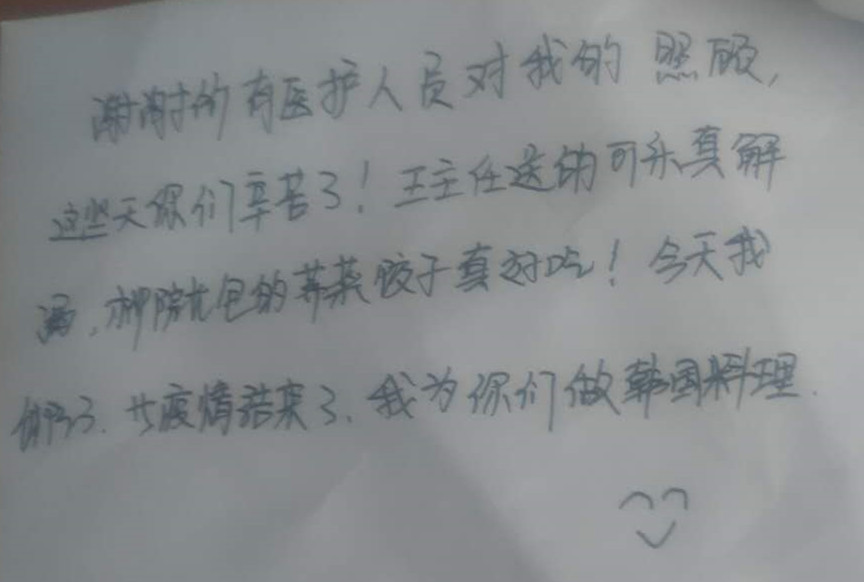 谢谢所有医护人员对我的照顾,
这些天你们辛苦了!王主任送的可乐真解
渴,柳院长包的荠菜饺子真好吃!今天我
解了.等疫情结束了,我为你们做韩国料理.